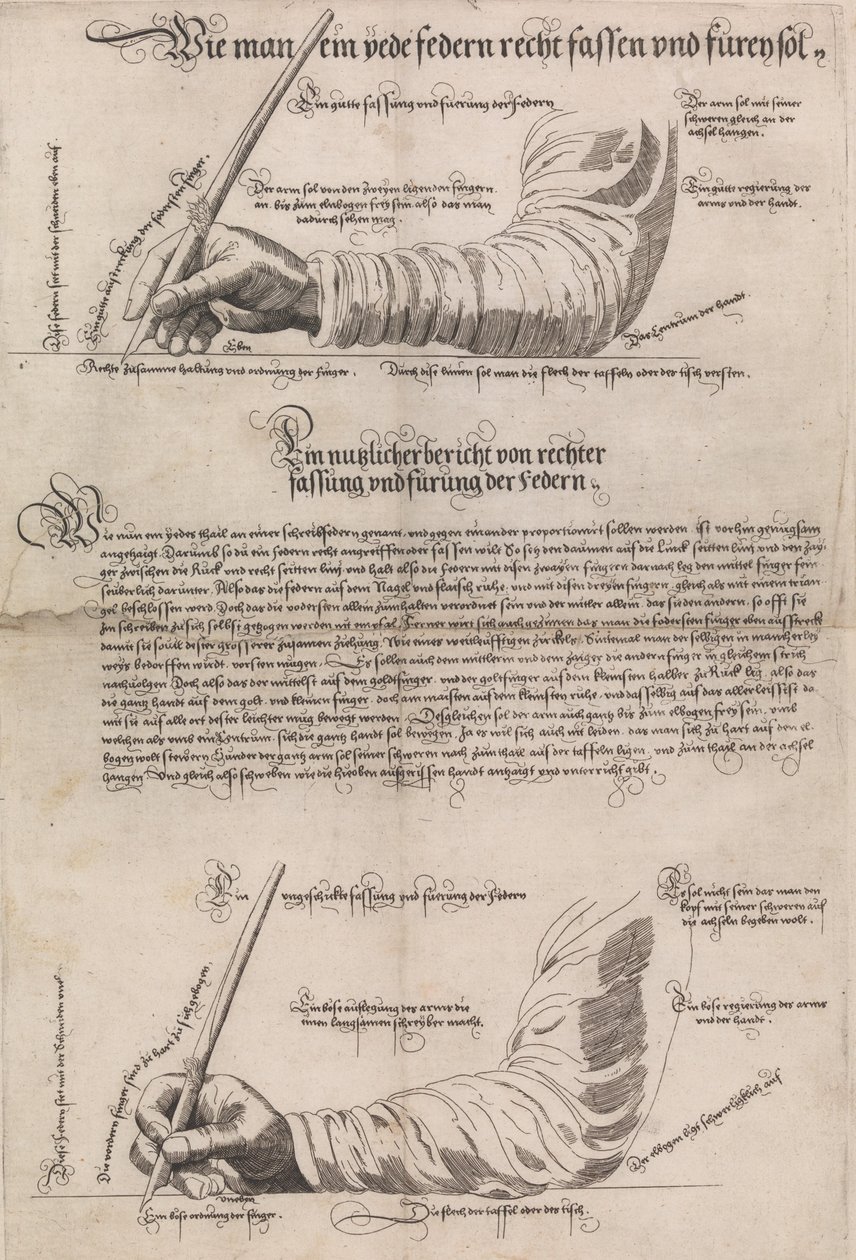 Wie man ein yede federn recht fassen vnd fürey sol
Ein gutte fassung vnd fuerung der Federn
Der arm sol mit seiner
schweren gleich an der
achsel hangen.
Der arm sol von den zweyen ligenden fingern
an bis zum elnbogen frey sein. also das man
dadurch sehen mag.
Ein gutte regierung des
arms vnd der handt.
Dise federn set mit der schneiden eben auf.
Ein gutte austreckung der federsten Finger.
Das Centrum der handt.
Eben
Rechte zusamme haltung vnd ordnung der finger.
Durch dise linien sol man die flech der taffeln oder des tisch versten.
Ein nutzlicher bericht von rechter
fassung vnd fürung der Federn
Wie nun ein yedes thail an einer schreibfedern genant, vnd gegen einander proportionirt sollen werden. ist vorhin genugsam
angezaigt. Darumb so du ein federn recht angreiffen oder fassen wilt So sez den daumen auf die Linck seitten linj vnd den zay,
ger zwischen die Ruck vnd recht seitten linj vnd halt also die federn mit disen zwayen fingern darnach leg den mittel finger fein
seuberlich darunter. Also das die federn auf dem Nagel vnd flaisch ruhe, vnd mit disen dreyen fingern gleich als mit einem trian,
gel beschlossen werd. Doch das die vodersten allein zum halten verordnet sein vnd der mitler allein das sie den andern so offt sie
im schreiben zu sich selbst gezogen werden Ferner wirt sich auch gezimen das man die fodersten finger eben ausstreck
damit sie souil dester grosserer zusamen ziehung. Wie eines weitleufftigen zirckels. Sintemal man der selbigen in mancherley
weys bedorffen wirdt, vorsten mugen. Es sollen auch dem mittlern vnd dem zaiger die andern finger in gleichem strich
nachuolgen Doch also das der mittelst auf dem goltfinger, vnd der goltfinger auf dem kleinsten halber zu Ruck lig, also das
die gantz handt auf dem golt, vnd kleinen finger, doch am maisten auf dem kleinsten ruhe, vnd das selbig auf das aller leissist da
mit sie auf alle ort dester leichter mug bewegt werden. Desgleichen sol der arm auch gantz bis zum elbogen frey sein, vmb
welchen als vmb ein Centrum, sich die gantz handt sol bewegen. Ja es wil sich auch nit leiden, das man sich zu hart auf den el.
bogen wolt stewern Sunder der gantz arm sol seiner schweren nach zum thail auf der taffeln ligen, vnd zum thail an der achsel
hangen. Vnd gleich also schweben wie die hieoben aufgerissen handt anzaigt vnd vnterricht gibt.
Ein vngeschickte fassung vnd fuerung der Federn
Es sol nicht sein das man den
kopf mit seiner schweren auf
die achseln begeben wolt.
Ein böse auflegung des arms die
einen langsamen schreyber macht.
Ein böse regierung des arms
vnd der handt.
Diese Federn set mit der Schneiden vneb
Die vordern finger sind zu hart zu sich gebogen,
Der elbogen ligt schwerligklich auf
vneben
Ein böse ordnung der finger.
Die flech der taffel oder des tisch.